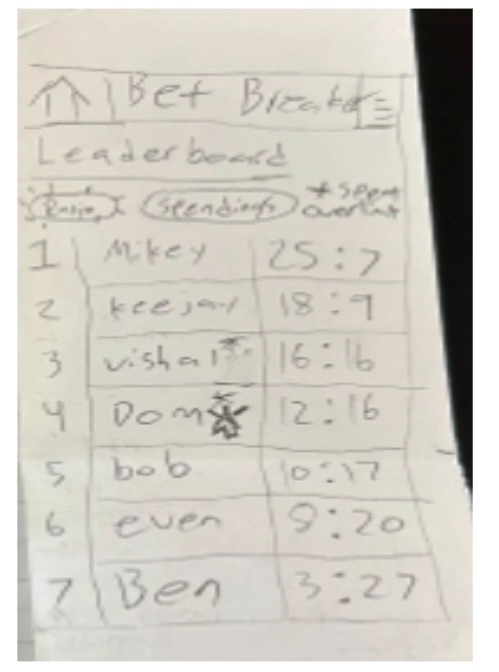 Bet Breaker
Leaderboard
Ratio Spendings * Spent
over limit
1 Mikey 25:7
2 keejay 18:9
3 vishal* 16:16
4 Dom* 12:16
5 bob 10:17
6 even 9:20
7 Ben 3:27